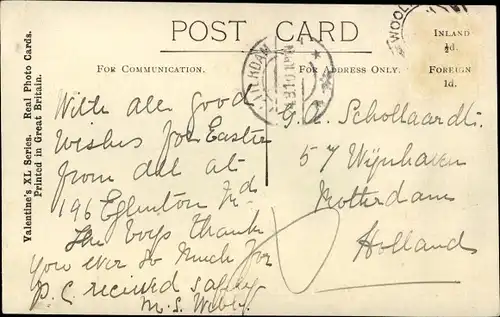 POST CARD
WOOL
INLAND
½d.
FOREIGN
1d.
FOR COMMUNICATION.
FOR ADDRESS ONLY.
Valentine's XL Series. Real Photo Cards.
Printed in Great Britain.
With all good
wishes for Easter
from all at
196 Eglinton Rd
The boys thank
you ever so much for
P.C received safely
M. S.
Schollaardt.
57 Wijnhaven
Rotterdam
Holland